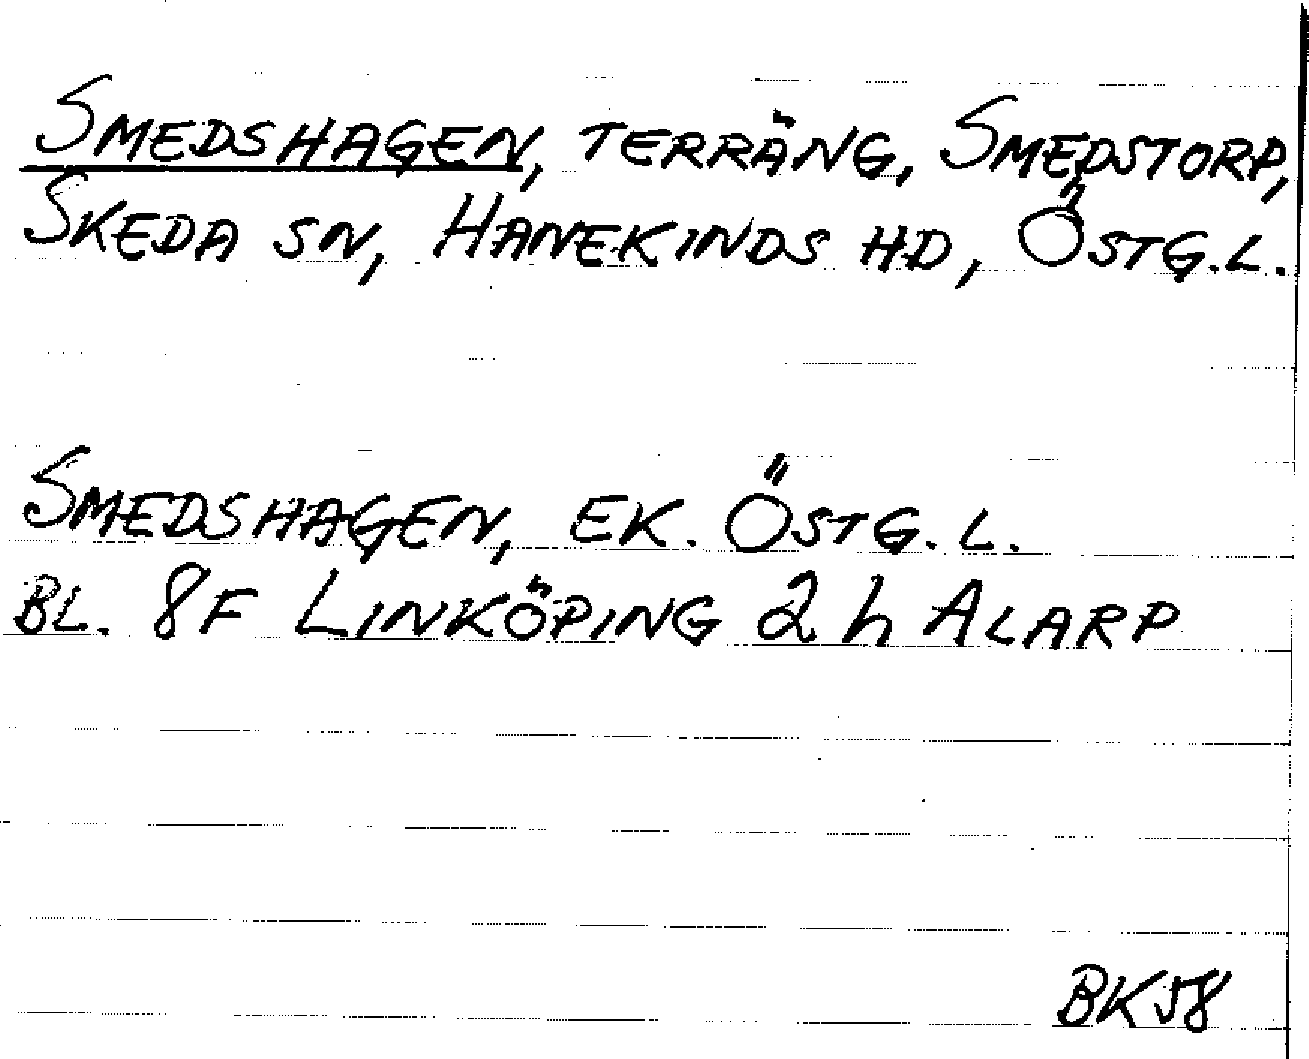 SMEDSHAGEN, TERRÄNG, SMEDSTORP,
SKEDA SN, HANEKINDS HD, ÖSTG.L.
SMEDSHAGEN, EK. ÖSTG. L.
BL. 8F LINKÖPING 2 h ALARP
BK58